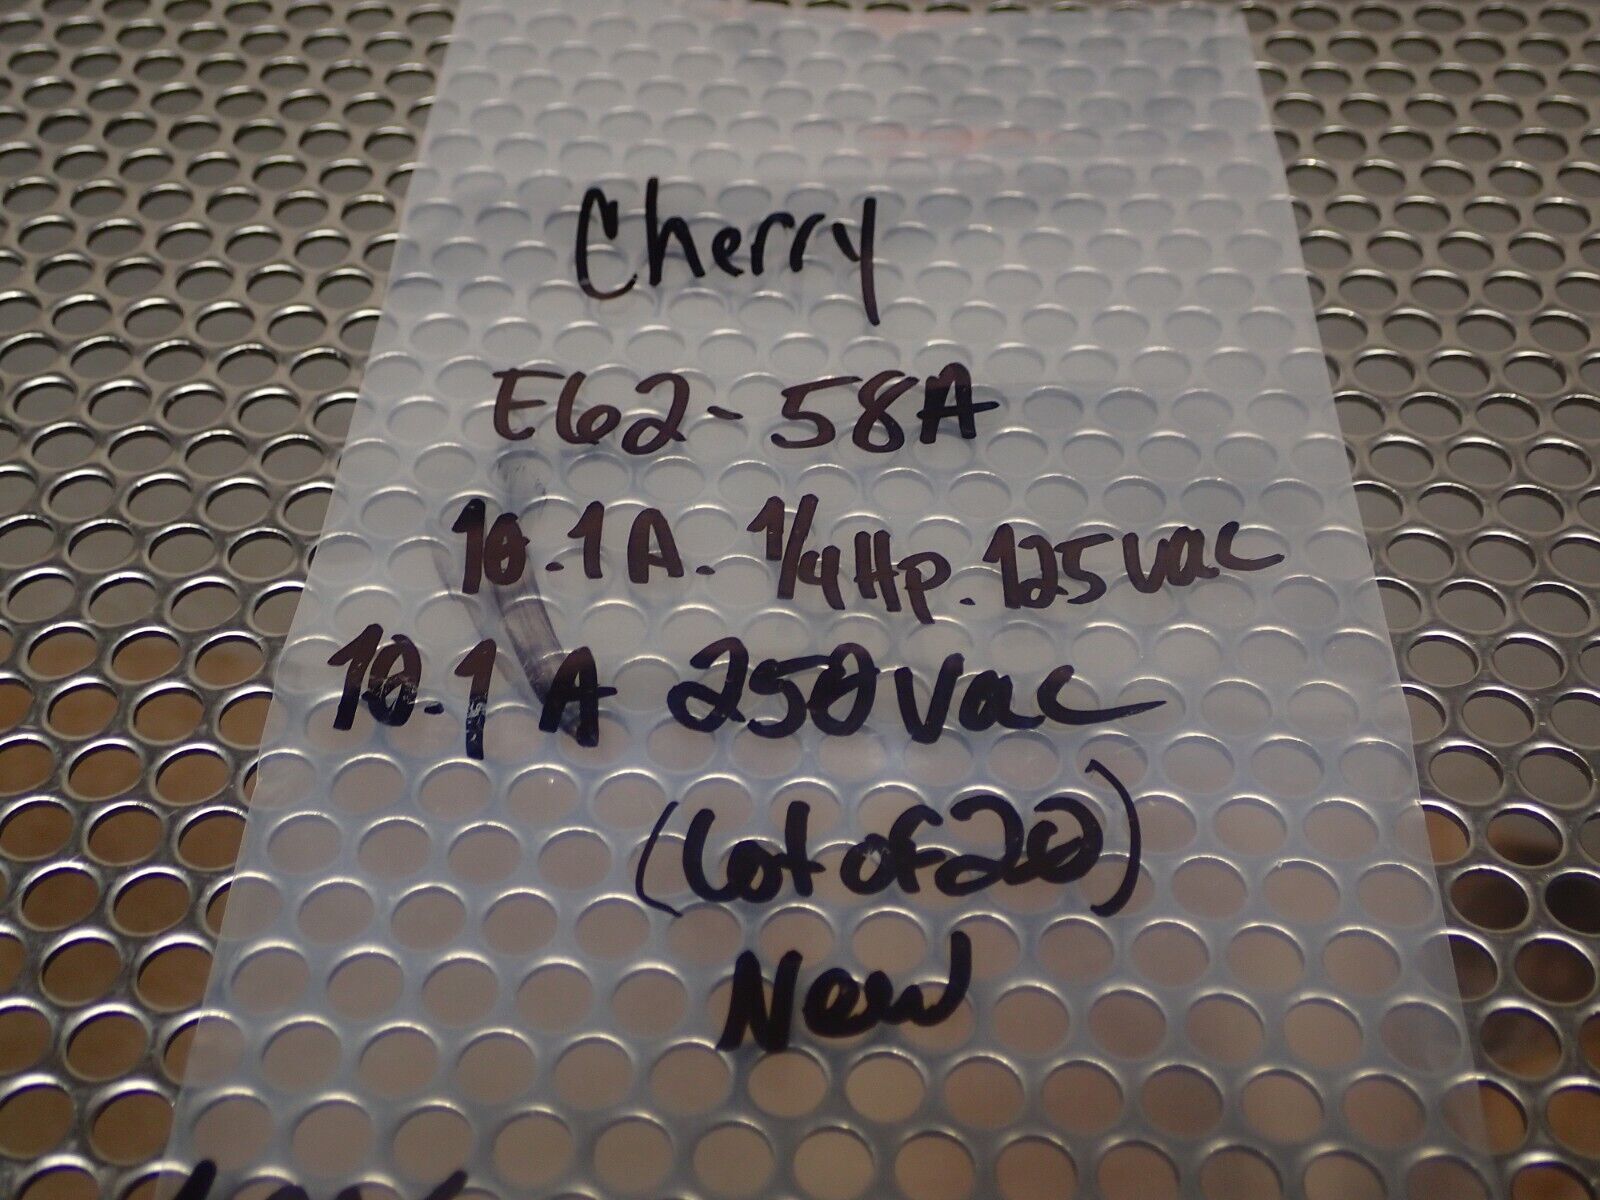 Cherry
E62-58A
10.1A. 1/4Hp. 125vac
10.1A 250vac
(Lot of 20)
New